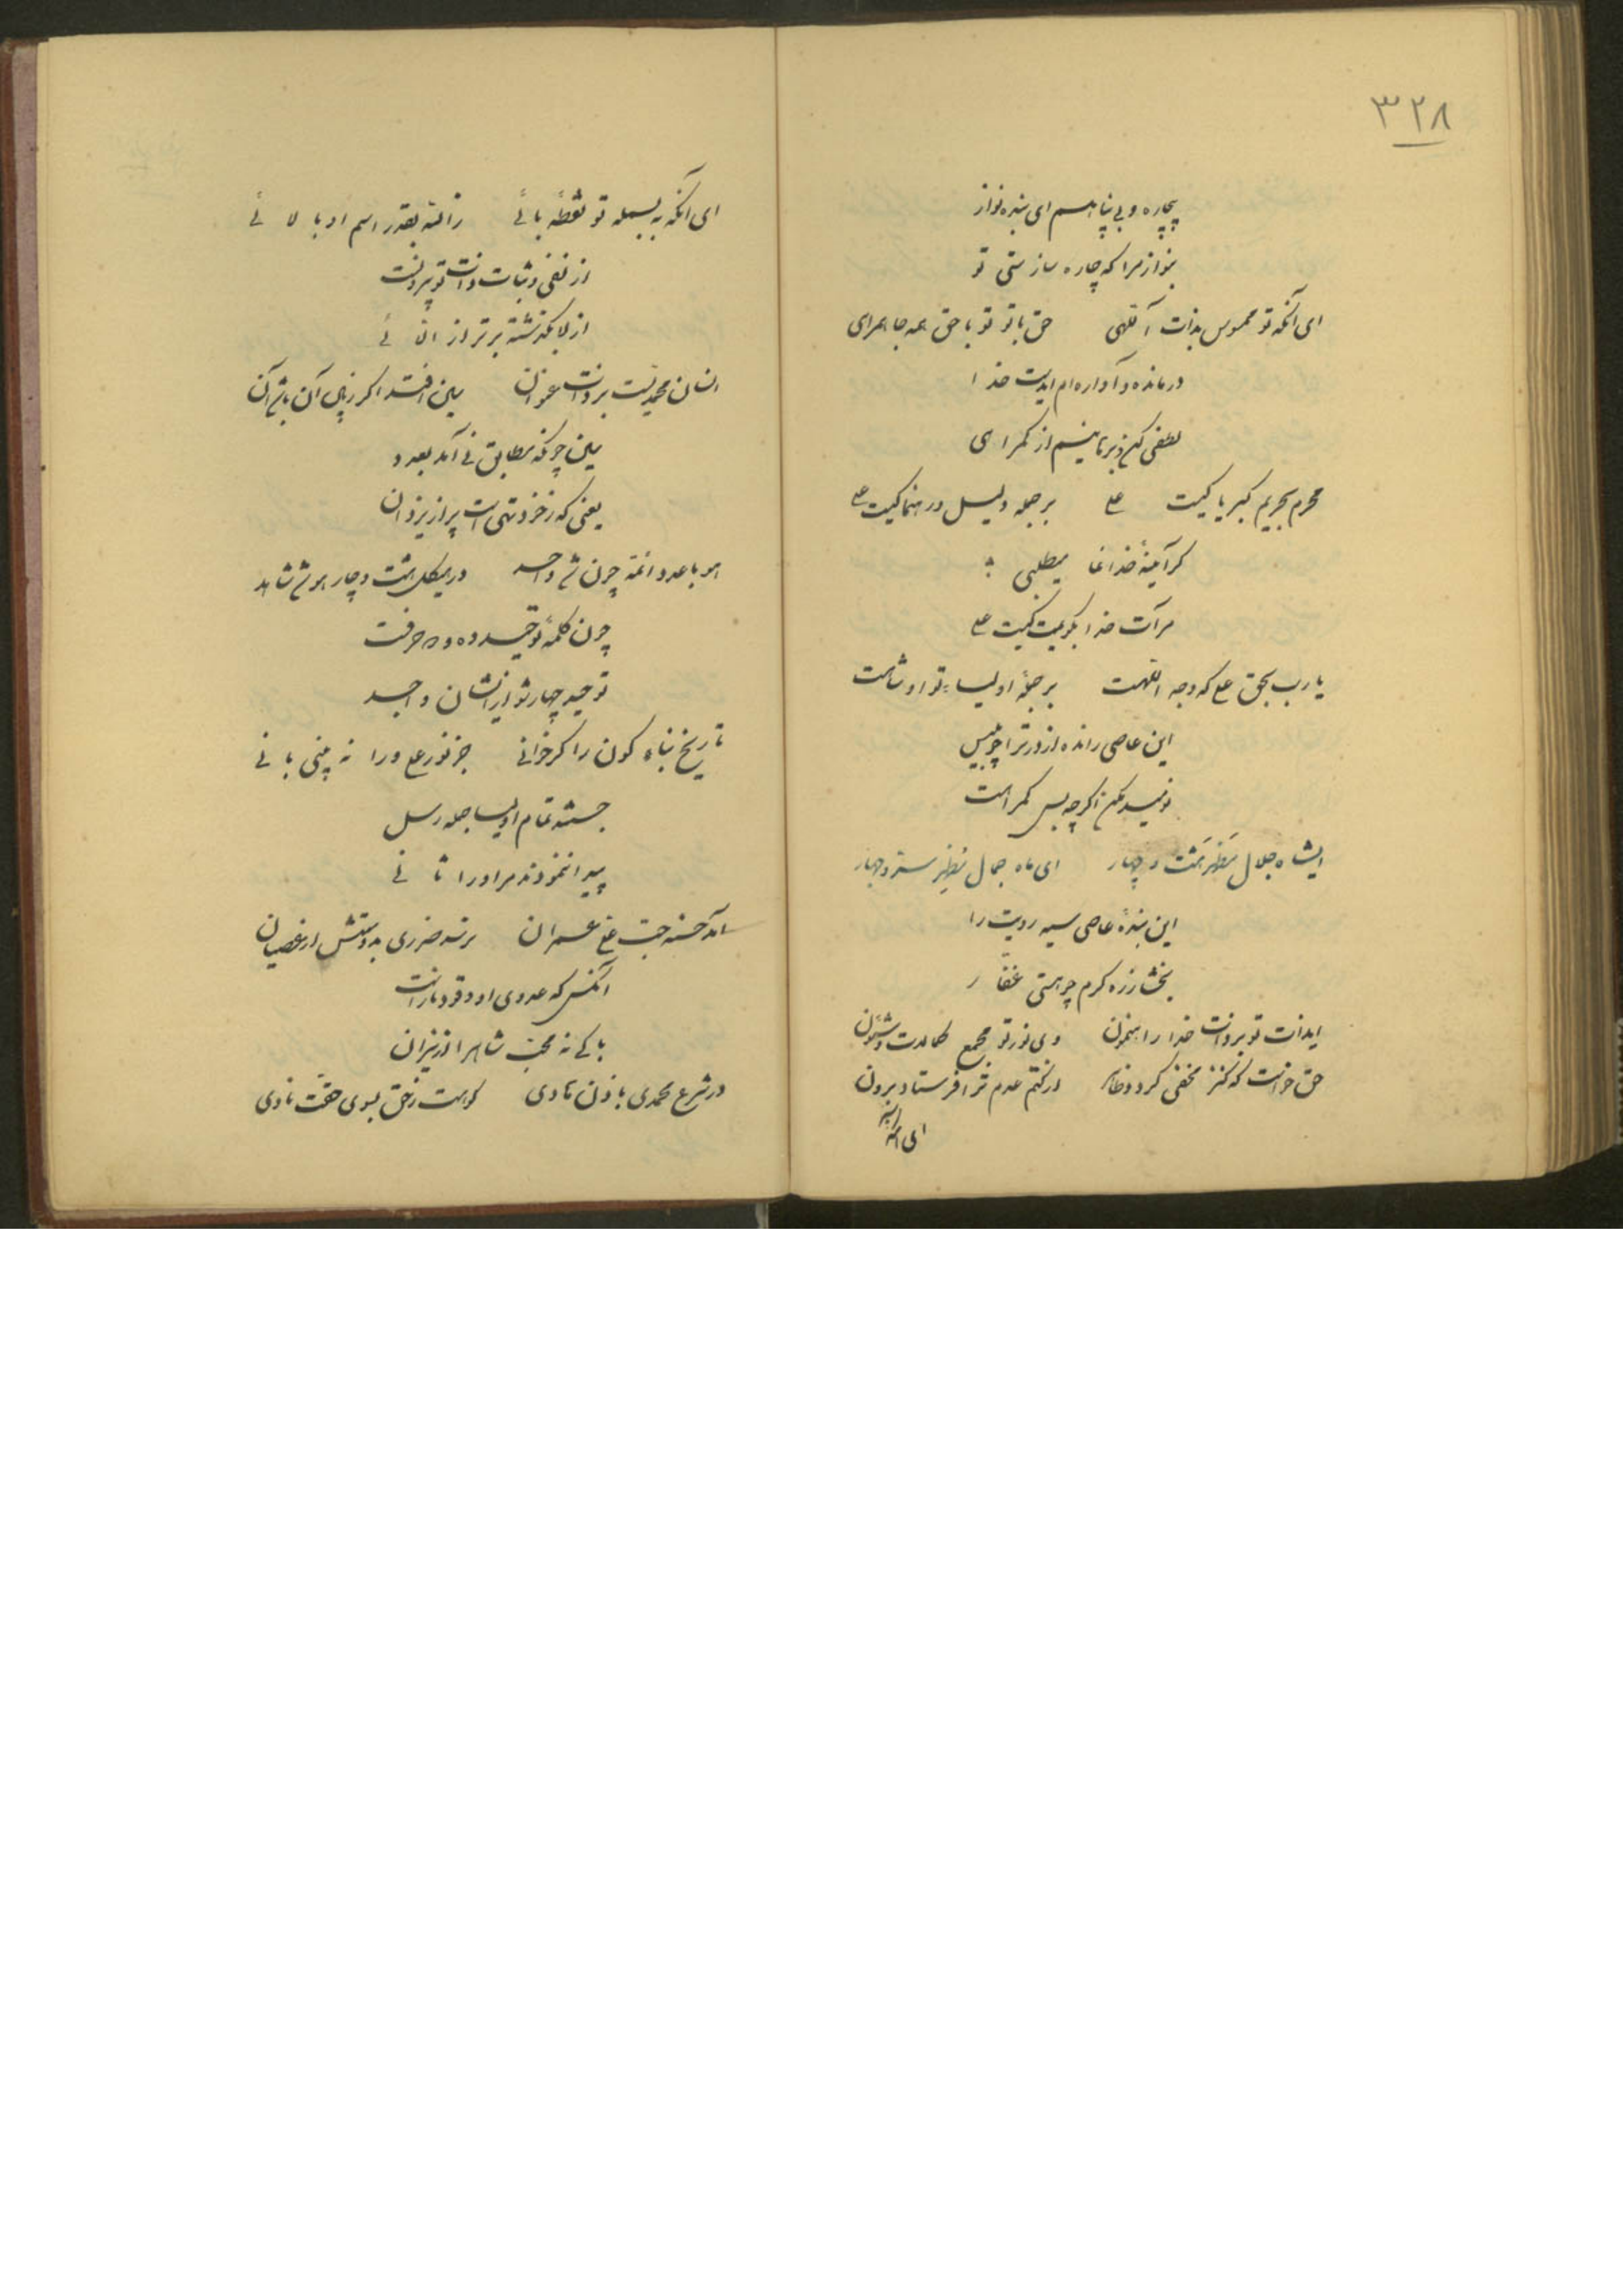 ۳۲۸
بیچاره و بی پناهم ای بنده نواز
بنواز مرا که چاره ساز ستی تو
ای آنکه تو ممسوس بذات آلهی حق با تو تو با حق همه جا همرای
درمانده و آواره ام ایدست خدا
لطفی کن و برهانیم از گمراهی
محرم بحریم کبریا کیست علی بر جمله دلیل و رهنما کیست علی
گر آینهٔ خدا نما میطلبی
مرآت خدا بگویمت کیست علی
یا رب بحق علی که وجه اللهست بر جملهٔ اولیاء تو او شاهست
این عاصی رانده از درت را چو بلیس
نومید مکن اگرچه بس گمراهست
ایشاه جلال مظهر هشت و چهار ای ماه جمال مظهر ستر و جهار
این بندهٔ عاصی سیه رویت را
بخشا ز ره کرم چو هستی غفار
ایذات تو بر ذات خدا راهنمون وی نور تو مجمع کمالات و شئون
حق خواست که کنز مخفی گردد ظاهر از کتم عدم ترا فرستاد برون
ای آنکه به
ای آنکه به بسمله تو نقطهٔ بائی زالله بقدر اسم او بالائی
از نفی و ثبات ذات تو بیرونست
از لا بگذشته برتر از الائی
انسان محمدیست بر ذات عنوان بین افتد اگر ز پای آن باشی آن
بین چونکه مطابق نی آمد بعدد
یعنی که ز خود تهی است پر از یزدان
هو با عدد ائمه چون شد واحد در هیکل هشت و چار هو شد شاهد
چون کلمهٔ توحید ده و دو حرفست
توحید چهار شو از ایشان واجد
تاریخ بناء کون را گر خوانی جز نور علی ورا نه بینی بانی
جستند تمام اولیا جمله رسل
پیدا ننمودند مر او را ثانی
آمد حسنه حب علی عمران نرسد ضرری بدوستش از عصیان
آنکس که عدوی او وقود نار است
باکی نه محب شاه را از نیران
در شرع محمدی باذن هادی کو هست ز حق بسوی حقت هادی